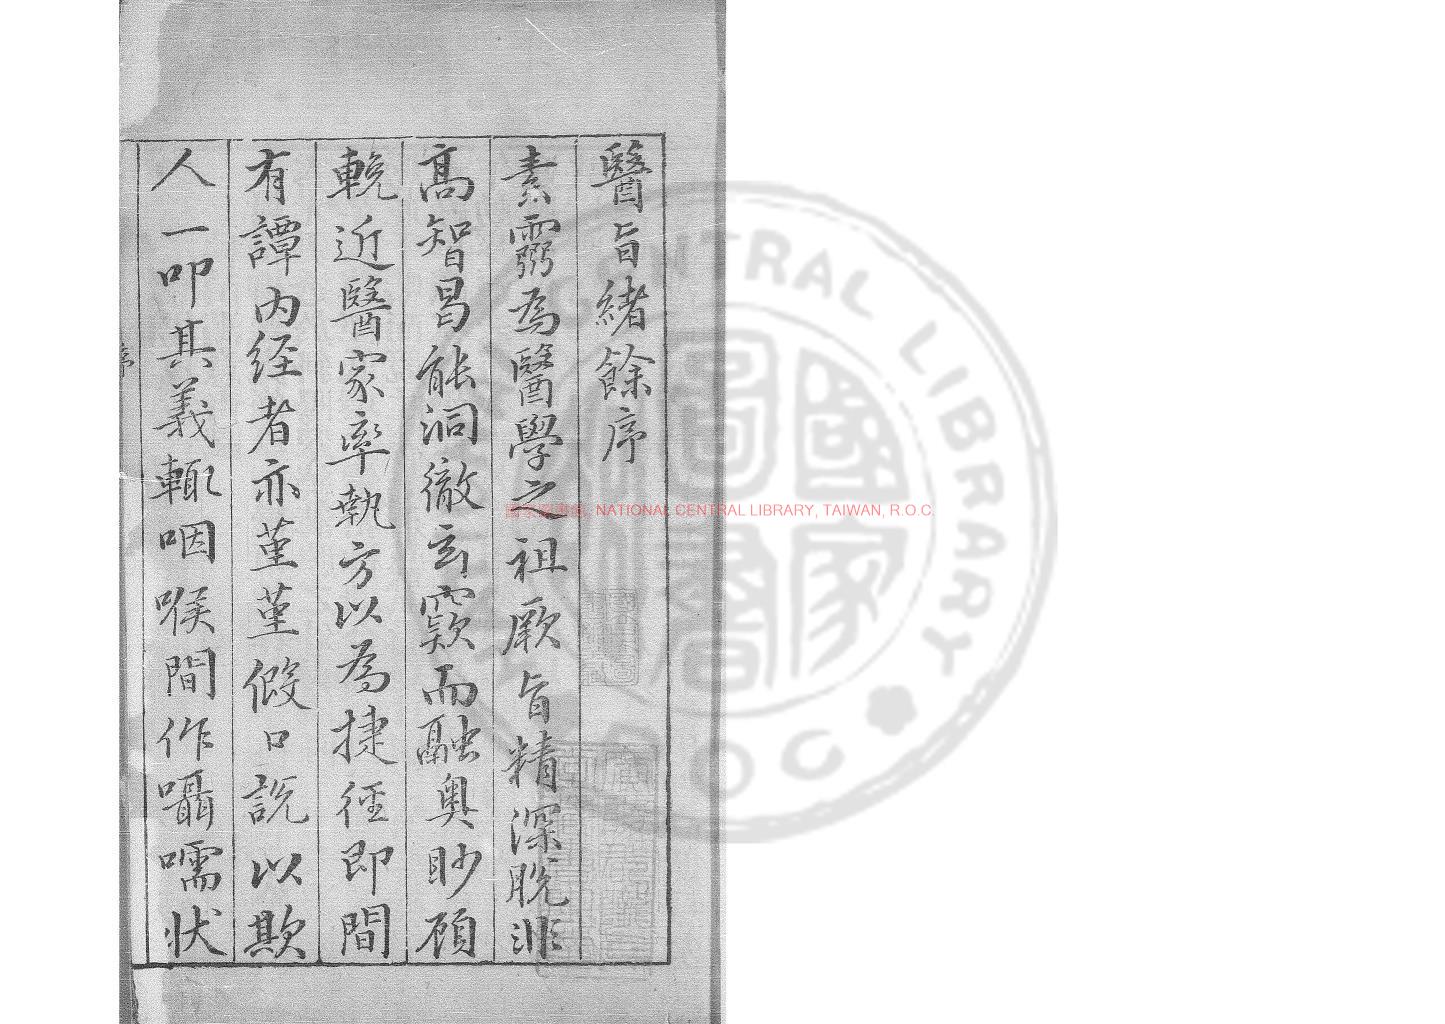 醫旨緒餘序
素靈為醫學之祖厥旨精深脫非
高智昌能洞徹玄竅而融奧眇顧
輓近醫家率執方以為捷徑即間
有譚內经者亦堇堇假口説以欺
人一叩其義輒咽喉間作囁嚅状
序
NATIONAL CENTRAL LIBRARY, TAIWAN, R.O.C
CENTRAL LIBRARY
R.O.C
國家圖書館